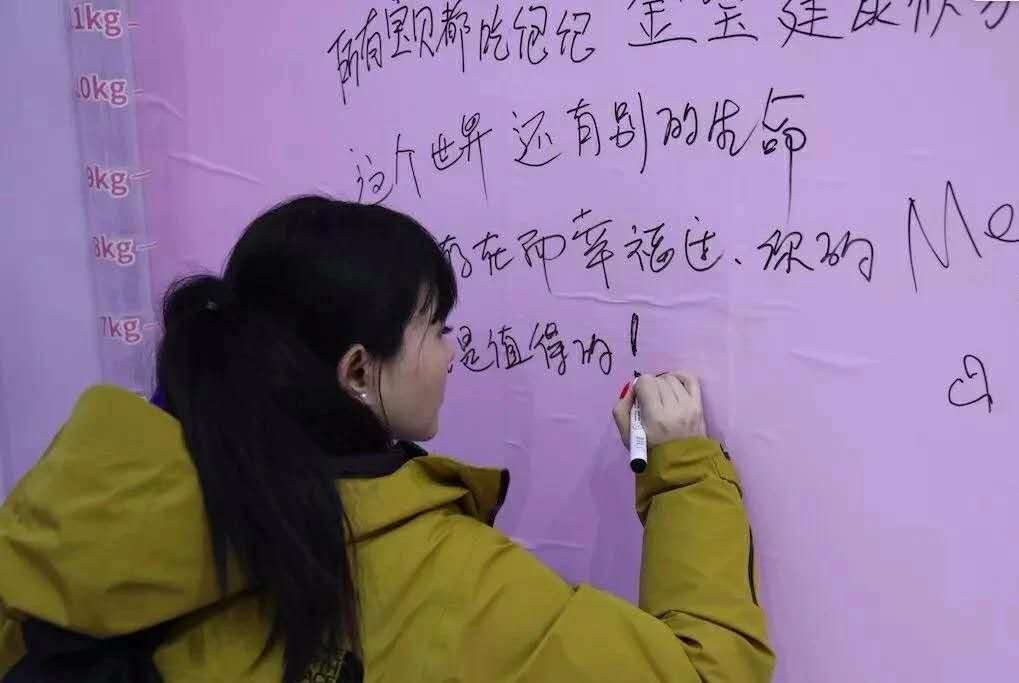 1kg
所有宝贝都吃饱饱 金宝 健康快
10kg
这个世界还有别的生命
9kg
存在而幸福过、你的 Me
8kg
是值得的！
7kg